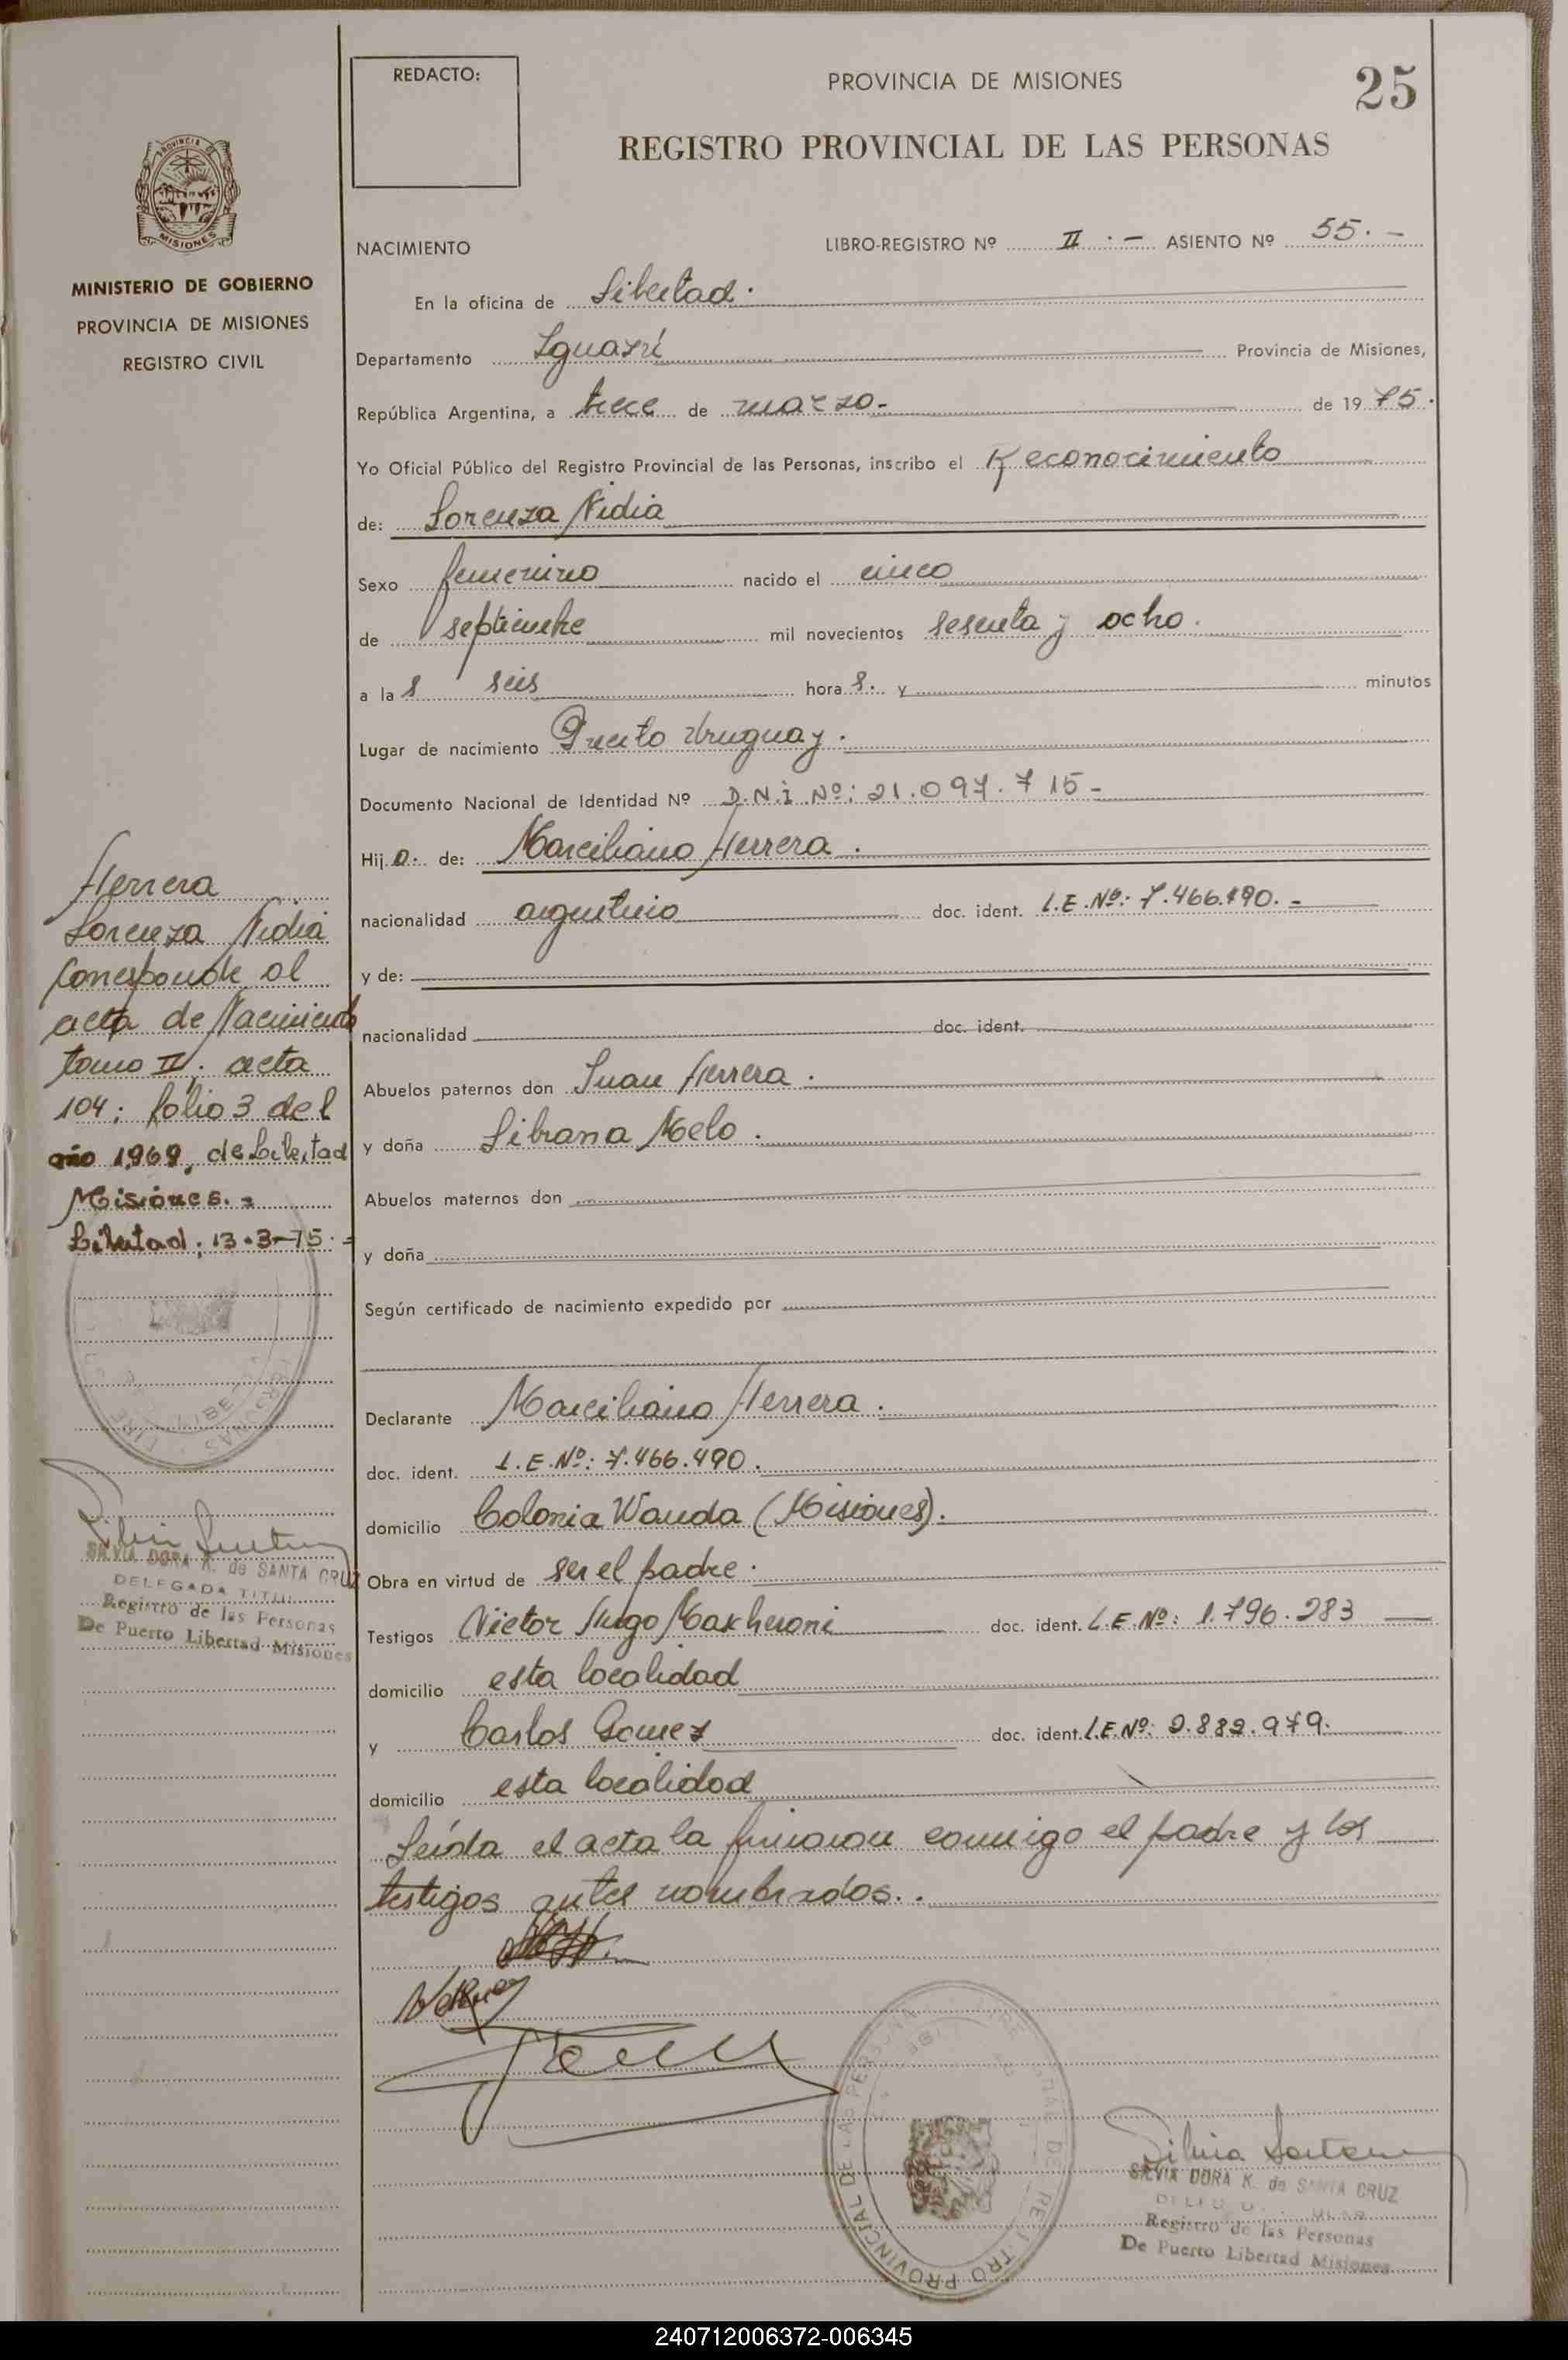 REDACTO:
PROVINCIA DE MISIONES
25
REGISTRO PROVINCIAL DE LAS PERSONAS
PROVINCIA DE
MISIONES
MINISTERIO DE GOBIERNO
PROVINCIA DE MISIONES
REGISTRO CIVIL
NACIMIENTO
LIBRO-REGISTRO Nº II.- ASIENTO Nº 55.-
En la oficina de Libertad.
Departamento Iguazú Provincia de Misiones,
República Argentina, a trece de marzo- de 1975.
Yo Oficial Público del Registro Provincial de las Personas, inscribo el Reconocimiento
de: Lorenza Nidia
Sexo femenino nacido el cinco
de septiembre mil novecientos sesenta y ocho.
a las seis horas. y minutos
Lugar de nacimiento Puerto Uruguay.
Documento Nacional de Identidad Nº D.N.I Nº: 21.097.715-
Hija. de: Marciliano Herrera.
nacionalidad argentino doc. ident. L.E.Nº: 7.466.490.-
y de:
nacionalidad doc. ident.
Abuelos paternos don Juan Herrera.
y doña Librana Melo.
Abuelos maternos don
y doña
Según certificado de nacimiento expedido por
Declarante Marciliano Herrera.
doc. ident. L.E.Nº: 7.466.490.
domicilio Colonia Wanda (Misiones).
Obra en virtud de ser el padre.
Testigos Victor Hugo doc. ident. L.E.Nº: 1.796.283
domicilio esta localidad
y Carlos Gomez doc. ident. L.E.Nº: 2.882.979.
domicilio esta localidad
Leída el acta la firmaron conmigo el padre y los
testigos antes nombrados..
Herrera
Lorenza Nidia
Corresponde al
acta de Nacimiento
tomo II; acta
104; folio 3 del
año 1969, de Libertad
Misiones.-
Libertad; 13-3-75.-
SILVIA DORA K. de SANTA CRUZ
DELEGADA TITULAR
Registro de las Personas
De Puerto Libertad Misiones
REGISTRO PROVINCIAL DE LAS PERSONAS
SILVIA DORA K. de SANTA CRUZ
DELEGADA TITULAR
Registro de las Personas
De Puerto Libertad Misiones
240712006372-006345